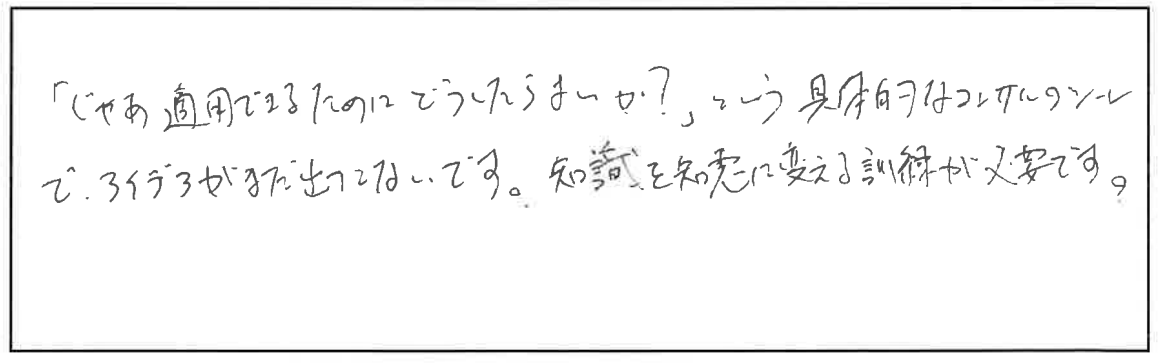 「じゃあ適用できるためにどうしたらよいか?」という具体的なコンサルのツール
で、アイデアがまだ出てこないです。知識を知恵に変える訓練が必要です。